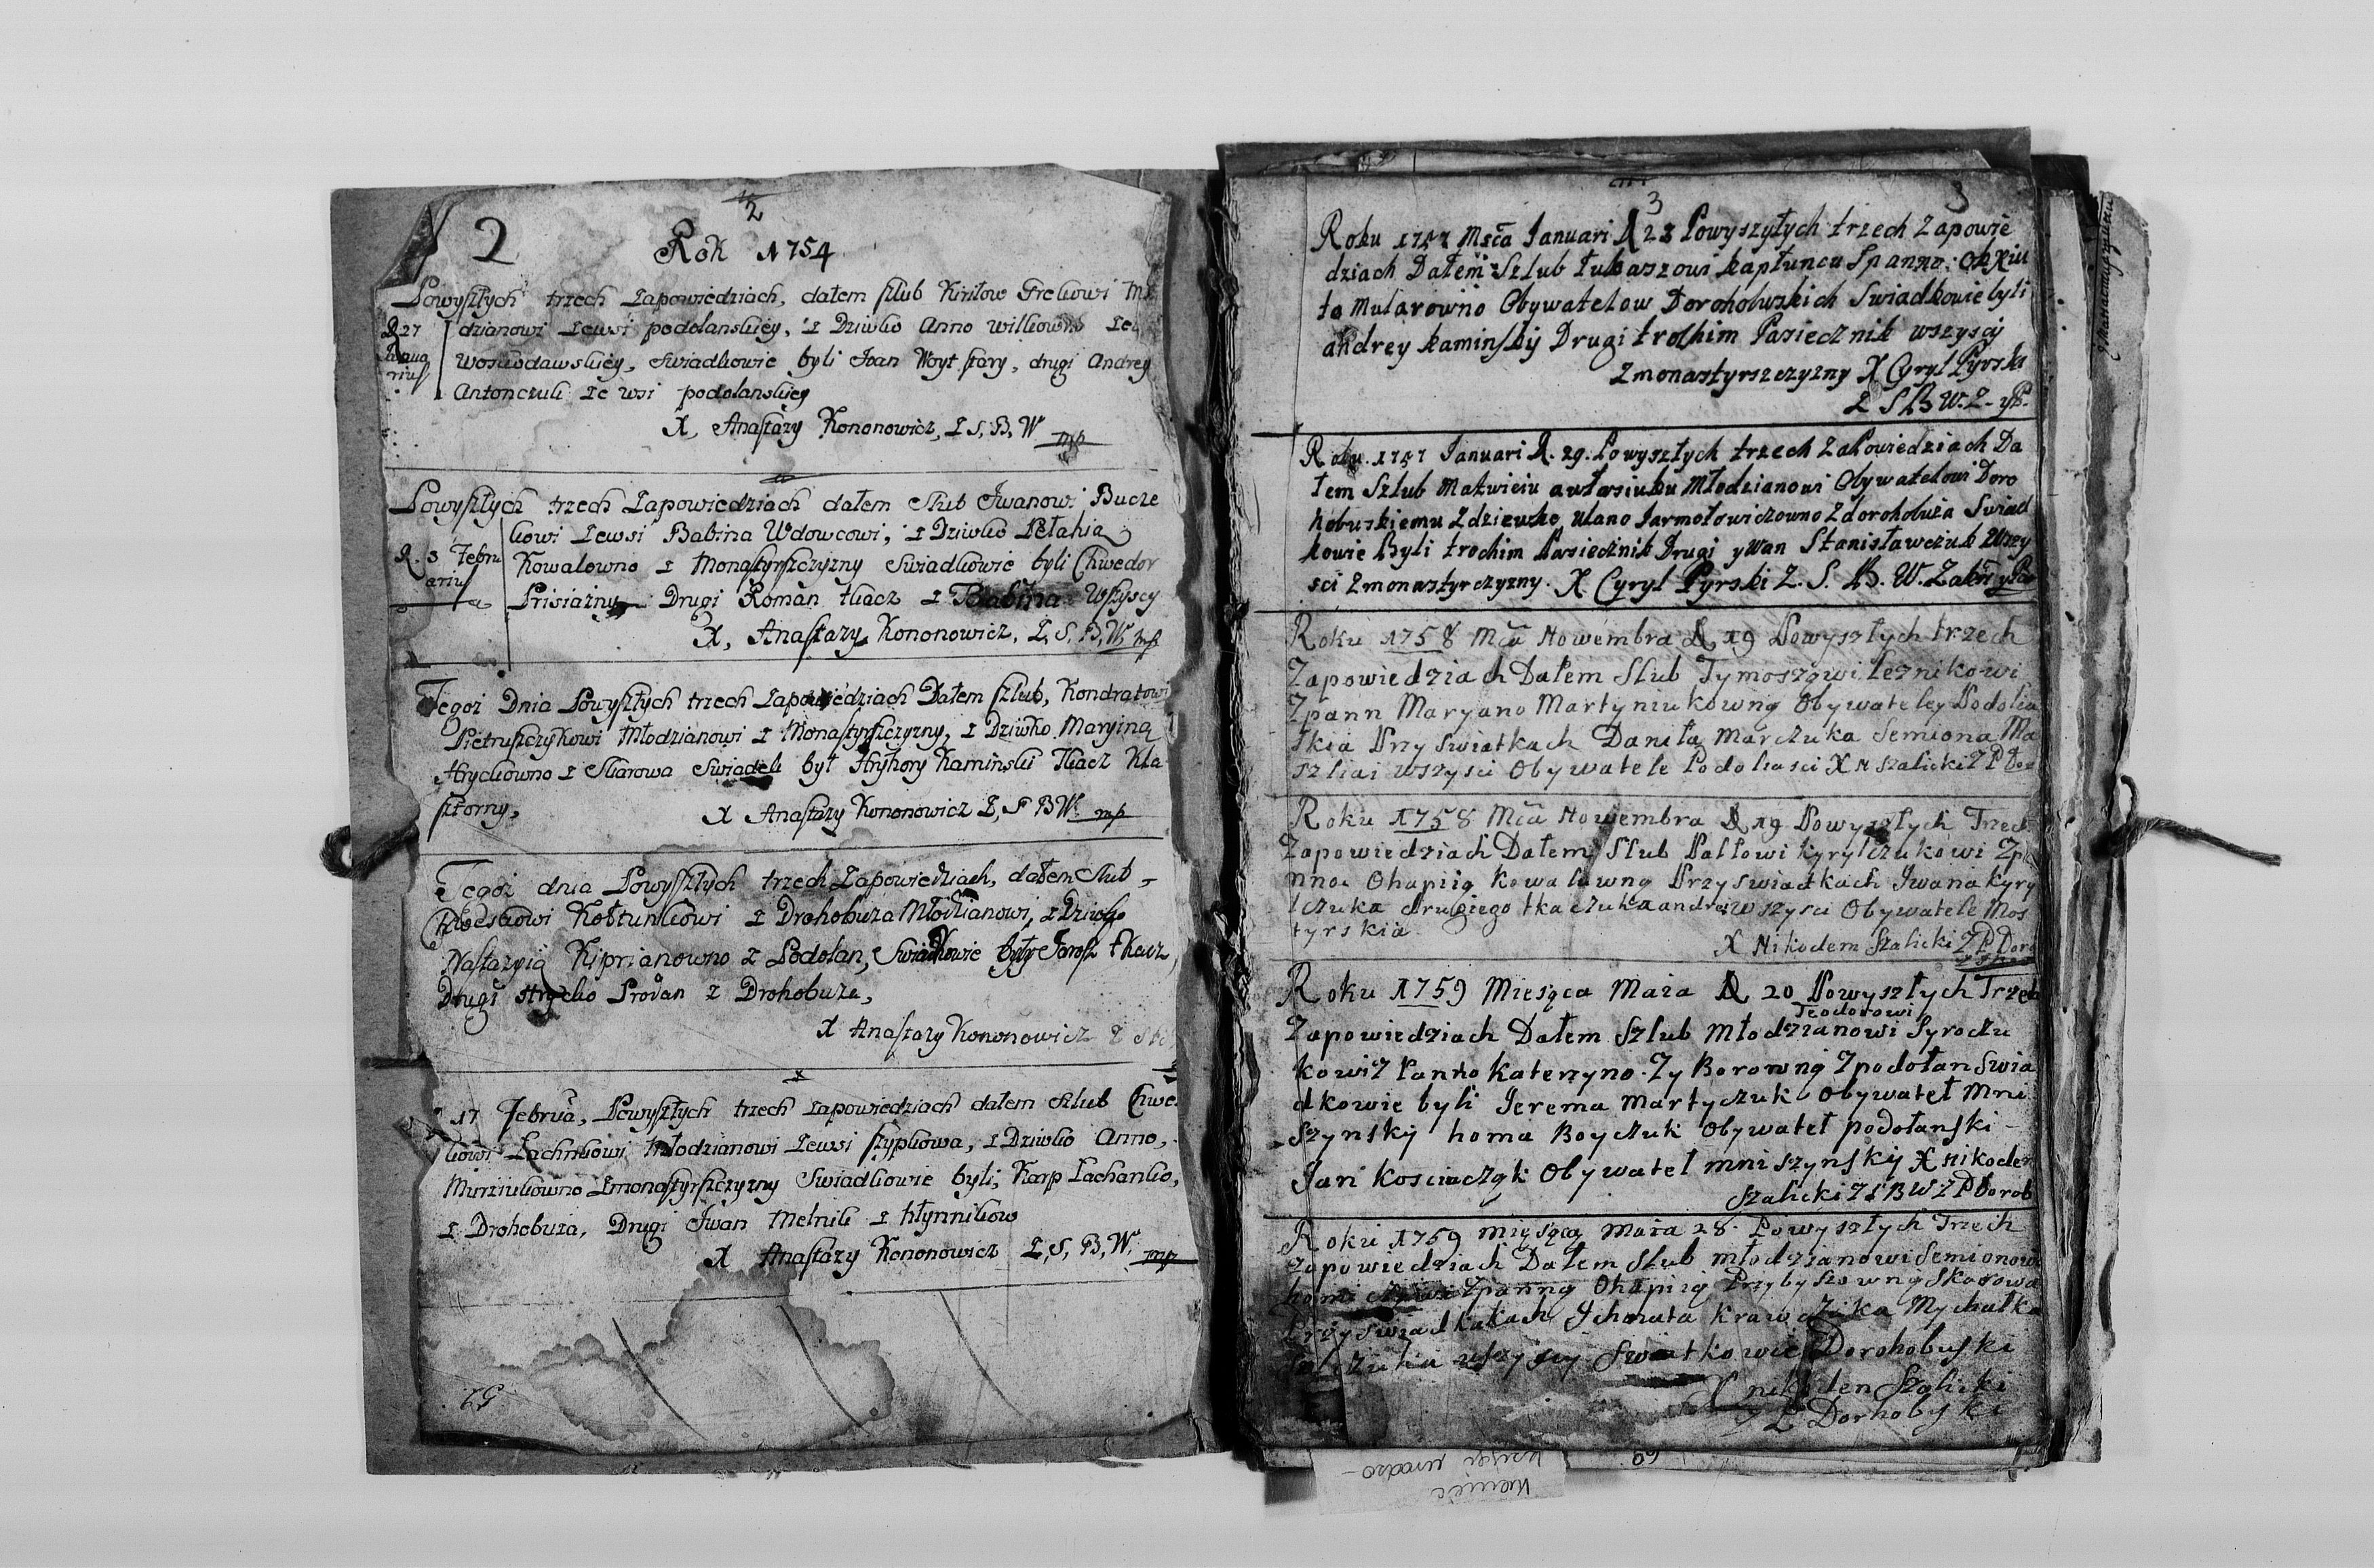 2
2
Rok 1754
Powyszłych trzech Zapowiedziach, dałem szlub Kiriłowi
D 27 dzianowi Zewsi podolanskiey, z Dziwko Anno
Ianua Woskodawskiey, Swiadkowie byli Iwan Woyt stary, drugi Andrey
rius Antonczuk ze wsi podolanskiey
X, Anastazy Kononowicz, Z S, B, W mp
Powyszłych trzech Zapowiedziach dałem Slub Jwanowi Bucze
kowi Zewsi Babina Wdowcowi, z Dziwko Pełahią
D. 3 Febru Kowalowno z Monastyrszczyzny Swiadkowie byli Chwedor
arius Prisiażny Drugi Roman tkacz z Babina Wszyscy
X, Anastazy Kononowicz, Z, S, B, W mp
Tegoż Dnia Powyszłych trzech Zapowiedziach Dałem szlub, Kondratowi
Pietruszczykowi Młodzianowi z Monastyrszczyzny, z Dziwko Maryiną
Hryckowno z Skarowa Swiadek był Hryhory Kaminski Tkacz Kla
sztorny,
X Anastazy Kononowicz Z, S B W. mp
Tegoż dnia Powyszłych trzech Zapowiedziach, dałem Slub
Kołtunkowi z Drohobuża Młodzianowi, z Dziwko
Nastazyią Kiprianowno z Podolan, Swiadkowie były Jarosz tkacz,
Drugi Hrycko Prodan z Drohobuża,
X Anastazy Kononowicz Z
17 Februa, Powyszłych trzech Zapowiedziach dałem szlub Chwe
kowi Lachnikowi Młodzianowi Zewsi szypkowa, z Dziwko Anno,
Murziukowno Zmonastyrszczyzny Swiadkowie byli, Karp Lachanko,
z Drohobuża, Drugi Jwan Melnik z kłynnikow
X Anastazy Kononowicz Z, S, B, W. mp
3
3
Roku 1757 Msca Ianuari D 23 Powyszłych trzech Zapowie
dziach Dałem Szlub łukaszowi kapłuncu Spanno
ta mularowno Obywatelow Dorohobuzkich Swiadkowie byli
andrey kaminskij Drugi trochim Pasiecznik wszyscy
Zmonastyrszczyzny X Cyryl Pyrski
Z S B W. Z. yP.
Roku. 1757 Ianuari D. 29. Powyszłych trzech Zapowiedziach Da
łem Szlub Matwieiu awłasiuku Młodzianowi Obywatelowi Doro
hobuskiemu Zdziewko Ulano Iarmołowiczowno Zdorohobuża Swiad
kowie Byli trochim Pasiecznik Drugi ywan Stanisławczuk Wszy
sci Zmonastyrczyzny. X Cyryl Pyrski Z. S. B. W.
Roku 1758 Mca Nowembra D 19 Powyszłych trzech
Zapowiedziach Dałem Slub Tymoszowi leznikowi
Zpann Maryano Martyniukowną Obywateley Podola
skia Przy Swiatkach Daniła Marczuka Semiona Ma
szliai wszysci Obywatele Podolasci X N Szalicki Z P
Roku 1758 Mca Nowembra D 19 Powyszłych Trzech
Zapowiedziach Dałem Slub Pałłowi kyrylczukowi Zpa
nno Ohapiią kowalowną Przyswiadkach Jwana kyry
lczuka drugiego tkaczuka andreia wszysci Obywatele Mos
tyrskia
X Nikodem Szalicki Z P Doro
Roku 1759 Miesąca Maia D 20 Powyszłych Trzech
Teodorowi
Zapowiedziach Dałem Szlub młodzianowi Syroczu
kowi Z Panno kateryno Zyborowną Zpodołan Swia
dkowie byli Jerema Martyczuk Obywatel Mni
szynskij homa Boyczuk Obywateł podołanski
Jan kosciaczyk Obywatel mniszynskij X Nikodem
Szalicki Z S B W Z P Dorob
Roku 1759 Miesąca Maia 28. Powyszłych Trzech
Zapowiedziach Dałem Slub młodzianowi Semionowi
Zpanną Ohapiią Przybyszowną Skarowa
Przyswiadkakach Ichnata krawczuka Mychałka
wszyscy Swiatkowie Dorohobuski
X nikodem Szalicki
Z P Dorhobyski